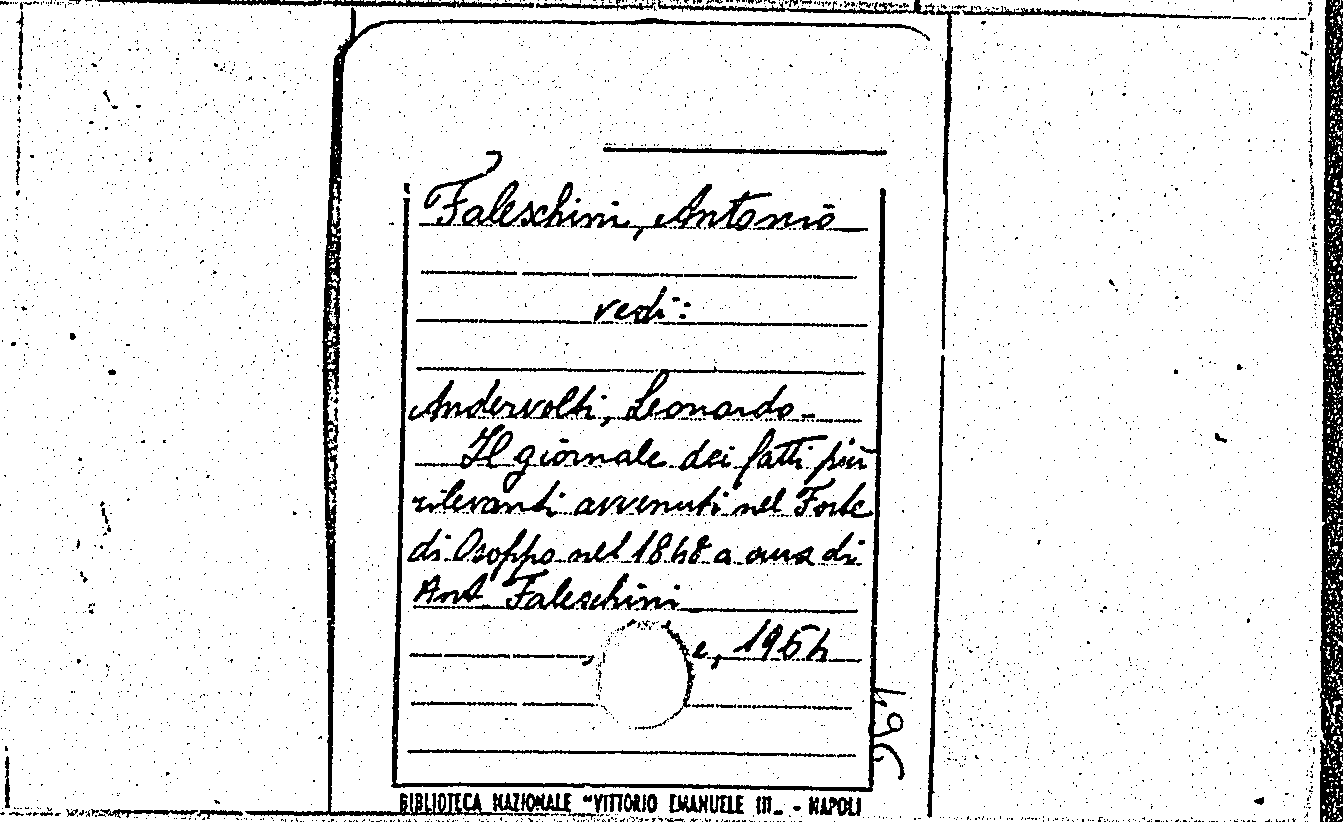 Faleschini, Antonio
vedi:
Andervolti, Leonardo-
Il giornale dei fatti più
rilevanti avvenuti nel Forte
di Osoppo nel 1848 a cura di
Ant. Faleschini
e, 1964
BIBLIOTECA NAZIONALE "VITTORIO EMANUELE III" - NAPOLI